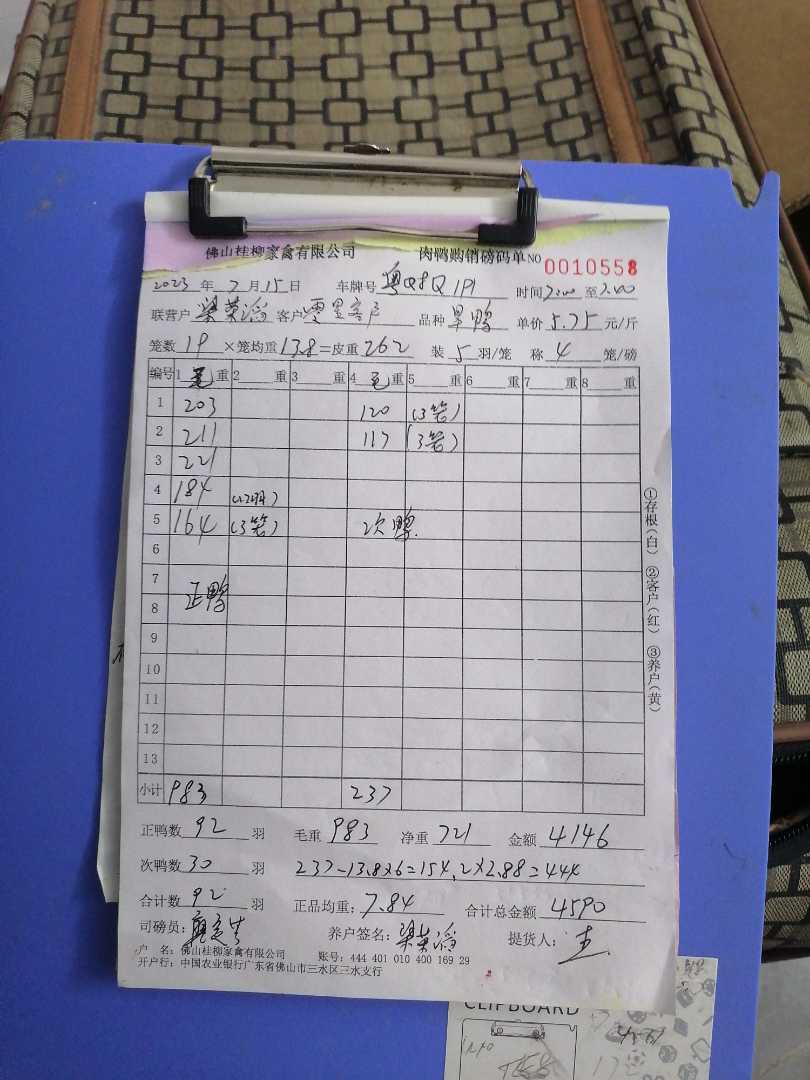 佛山桂柳家禽有限公司 肉鸭购销磅码单 NO 0010558
2023 年 7 月 15 日 车牌号 粤Q8Q1P1 时间 7:00 至 7:00
联营户 梁荣滔 客户 零星客户 品种 旱鸭 单价 5.75 元/斤
笼数 19 ×笼均重 13.8 =皮重 262 装 5 羽/笼 称 4 笼/磅
编号 1 毛 重 2 重 3 重 4 毛 重 5 重 6 重 7 重 8 重
1 203 120 (3笼)
2 211 117 (3笼)
3 221
4 184
5 164 (3笼) 次鸭
6
7
正鸭
8
9
10
11
12
13
小计 983 237
①存根(白) ②客户(红) ③养户(黄)
正鸭数 92 羽 毛重 983 净重 721 金额 4146
次鸭数 30 羽 237-13.8×6=154.2×2.88=444
合计数 92 羽 正品均重: 7.84 合计总金额 4590
司磅员: 养户签名: 梁荣滔 提货人:
户 名: 佛山桂柳家禽有限公司 账号: 444 401 010 400 169 29
开户行: 中国农业银行广东省佛山市三水区三水支行
CLIPBOARD